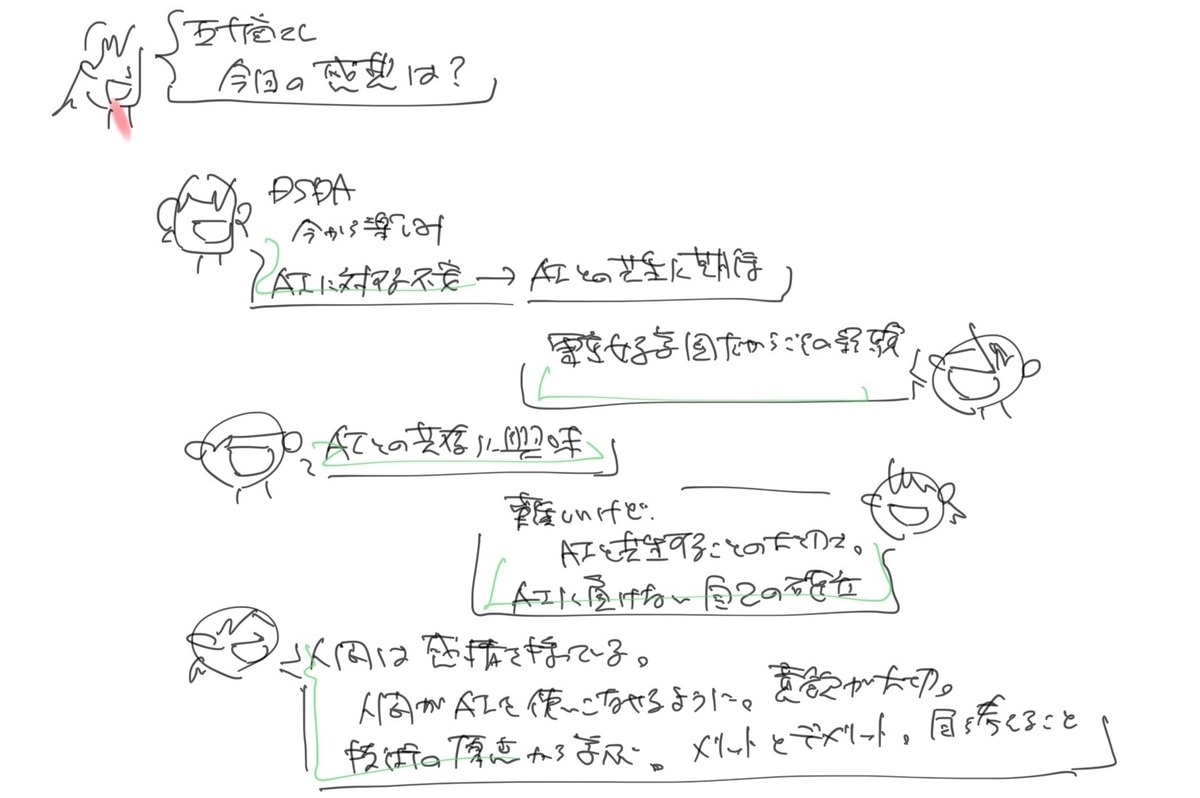 今回の感想は?
DSDA
今から楽しみ
AIに対する不安→AIとの共生に期待
女子学園だからこその経験
AIとの共存に興味
難しいけど、
AIと共生することの大切さ。
AIに負けない自己の確立
人間は感情を持っている。
人間がAIを使いこなせるように。意欲が大切。
技術の原点から学ぶ。メリットとデメリット。自ら考えること